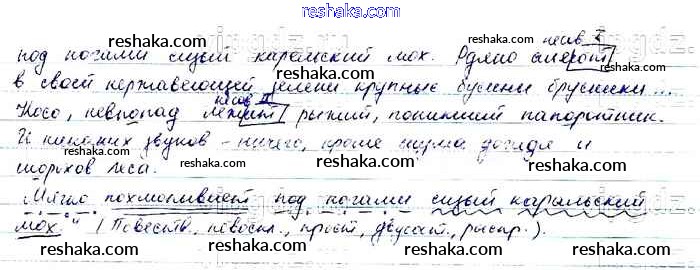 reshaka.com
под ногами сизый карельский мох. Рдяно алеют несов. I
в своей нержавеющей зелени крупные бусины брусники ...
Косо, невпопад лежит несов. II рыжий, поникший папоротник.
И никаких звуков – ничего, кроме шума дождя и
шорохов леса.
Мягко похлопывает под ногами сизый карельский
мох." (Повеств., невоскл., прост., двусост., распр.).
reshaka.com reshaka.com
reshaka.com reshaka.com
reshaka.com reshaka.com reshaka.com
reshaka.com reshaka.com reshaka.com
reshaka.com